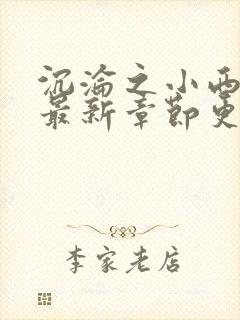 沉沦之小西
最新章节更
李家老店